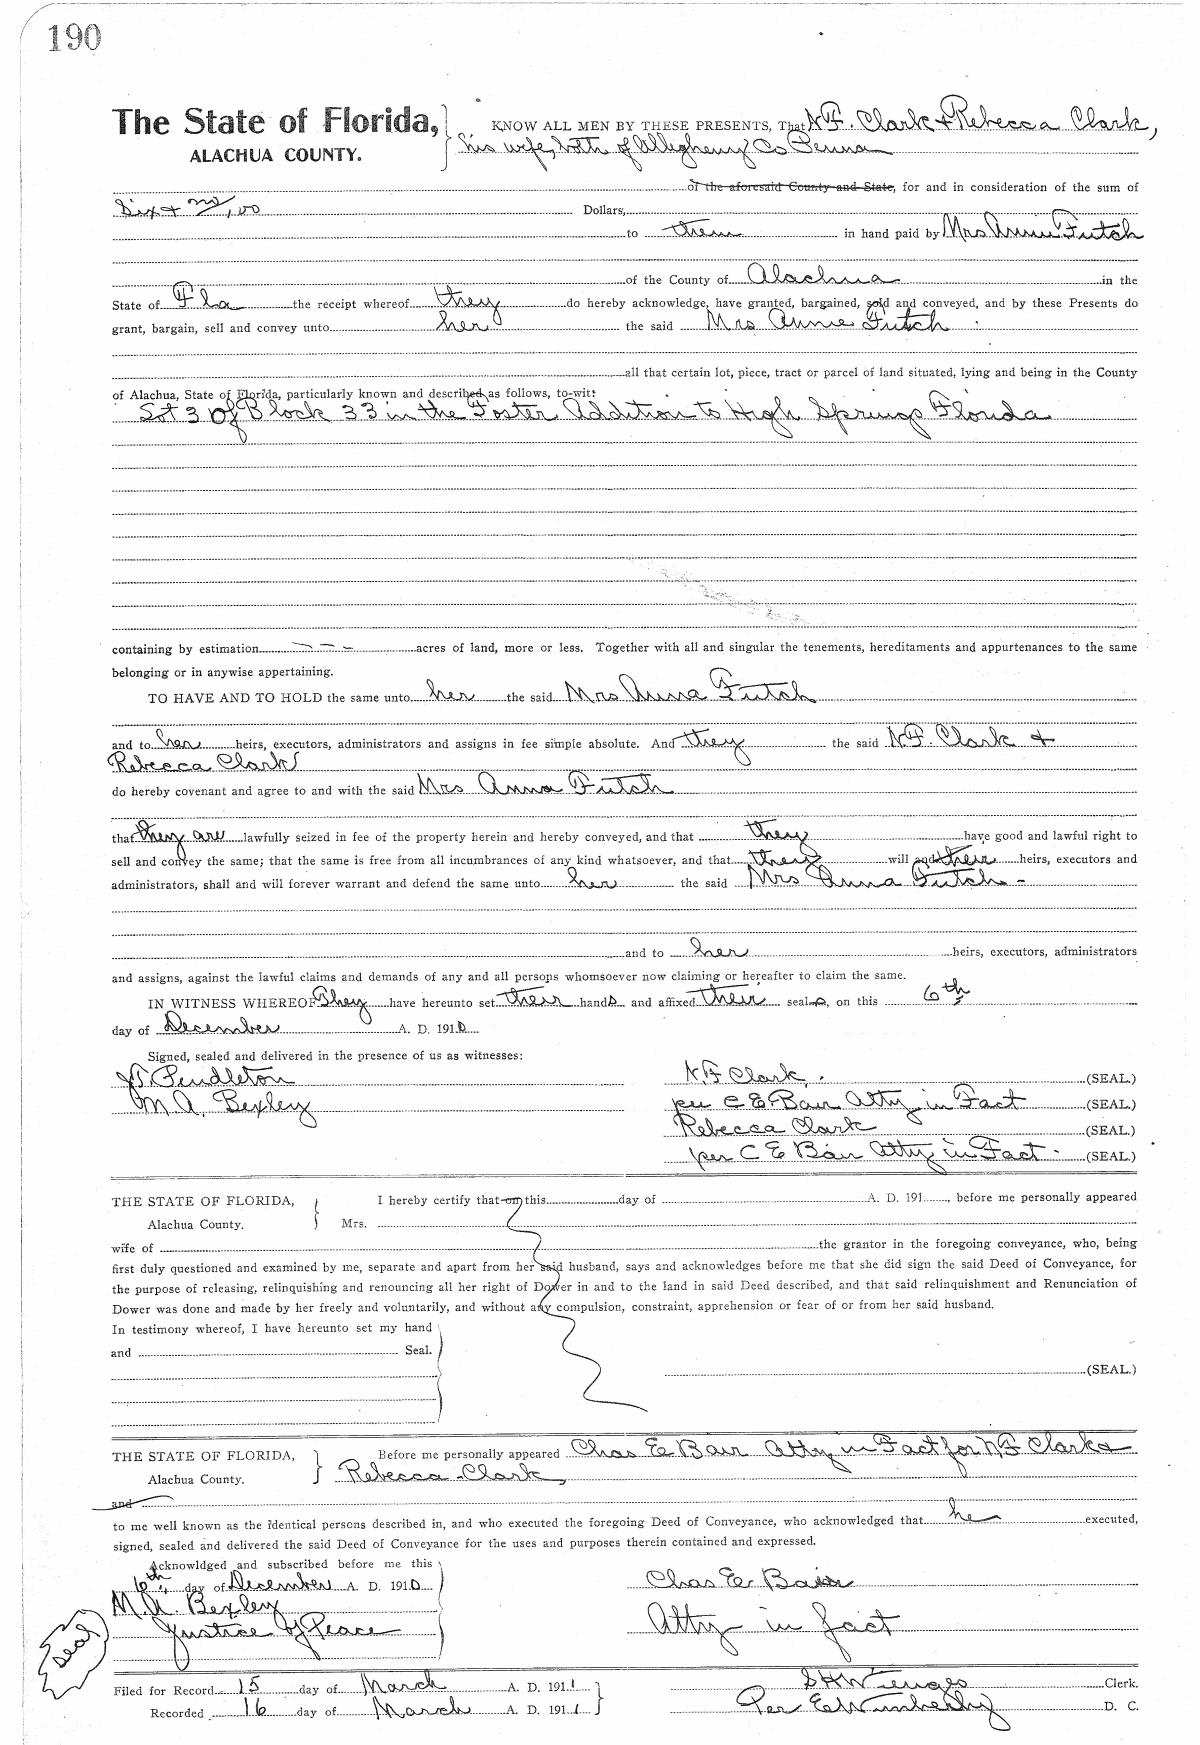 190
The State of Florida, KNOW ALL MEN BY THESE PRESENTS, That N.F. Clark & Rebecca Clark,
ALACHUA COUNTY. his wife, both of Allegheny Co Penna
of the aforesaid County and State, for and in consideration of the sum of
Six & no/100 Dollars,
to them in hand paid by Mrs Annie Futch
of the County of Alachua in the
State of Fla the receipt whereof they do hereby acknowledge, have granted, bargained, sold and conveyed, and by these Presents do
grant, bargain, sell and convey unto her the said Mrs Annie Futch
all that certain lot, piece, tract or parcel of land situated, lying and being in the County
of Alachua, State of Florida, particularly known and described as follows, to-wit:
Lot 3 of Block 33 in the Foster Addition to High Springs Florida
containing by estimation - - - acres of land, more or less. Together with all and singular the tenements, hereditaments and appurtenances to the same
belonging or in anywise appertaining.
TO HAVE AND TO HOLD the same unto her the said Mrs Anna Futch
and to her heirs, executors, administrators and assigns in fee simple absolute. And they the said N.F. Clark &
Rebecca Clark
do hereby covenant and agree to and with the said Mrs Anna Futch
that they are lawfully seized in fee of the property herein and hereby conveyed, and that they have good and lawful right to
sell and convey the same; that the same is free from all incumbrances of any kind whatsoever, and that they will and their heirs, executors and
administrators, shall and will forever warrant and defend the same unto her the said Mrs Anna Futch -
and to her heirs, executors, administrators
and assigns, against the lawful claims and demands of any and all persons whomsoever now claiming or hereafter to claim the same.
IN WITNESS WHEREOF They have hereunto set their hands and affixed their seals, on this 6th
day of December A. D. 1910
Signed, sealed and delivered in the presence of us as witnesses:
Pendleton N.F Clark. (SEAL.)
M A. Bexley per C E Bair Atty in Fact (SEAL.)
Rebecca Clark (SEAL.)
per C E Bair Atty in Fact. (SEAL.)
THE STATE OF FLORIDA, I hereby certify that on this day of A. D. 191 , before me personally appeared
Alachua County. Mrs.
wife of the grantor in the foregoing conveyance, who, being
first duly questioned and examined by me, separate and apart from her said husband, says and acknowledges before me that she did sign the said Deed of Conveyance, for
the purpose of releasing, relinquishing and renouncing all her right of Dower in and to the land in said Deed described, and that said relinquishment and Renunciation of
Dower was done and made by her freely and voluntarily, and without any compulsion, constraint, apprehension or fear of or from her said husband.
In testimony whereof, I have hereunto set my hand
and Seal.
(SEAL.)
THE STATE OF FLORIDA, Before me personally appeared Chas E Bair Atty in Fact for N F Clark &
Alachua County. Rebecca Clark,
and
to me well known as the identical persons described in, and who executed the foregoing Deed of Conveyance, who acknowledged that he executed,
signed, sealed and delivered the said Deed of Conveyance for the uses and purposes therein contained and expressed.
Acknowldged and subscribed before me this
6th day of December A. D. 1910 Chas E Bair
M.A. Bexley
Justice of Peace Atty in fact
Seal
Filed for Record 15 day of March A. D. 1911 S H Wienges Clerk.
Recorded 16 day of March A. D. 1911 Per E Wimberly D. C.